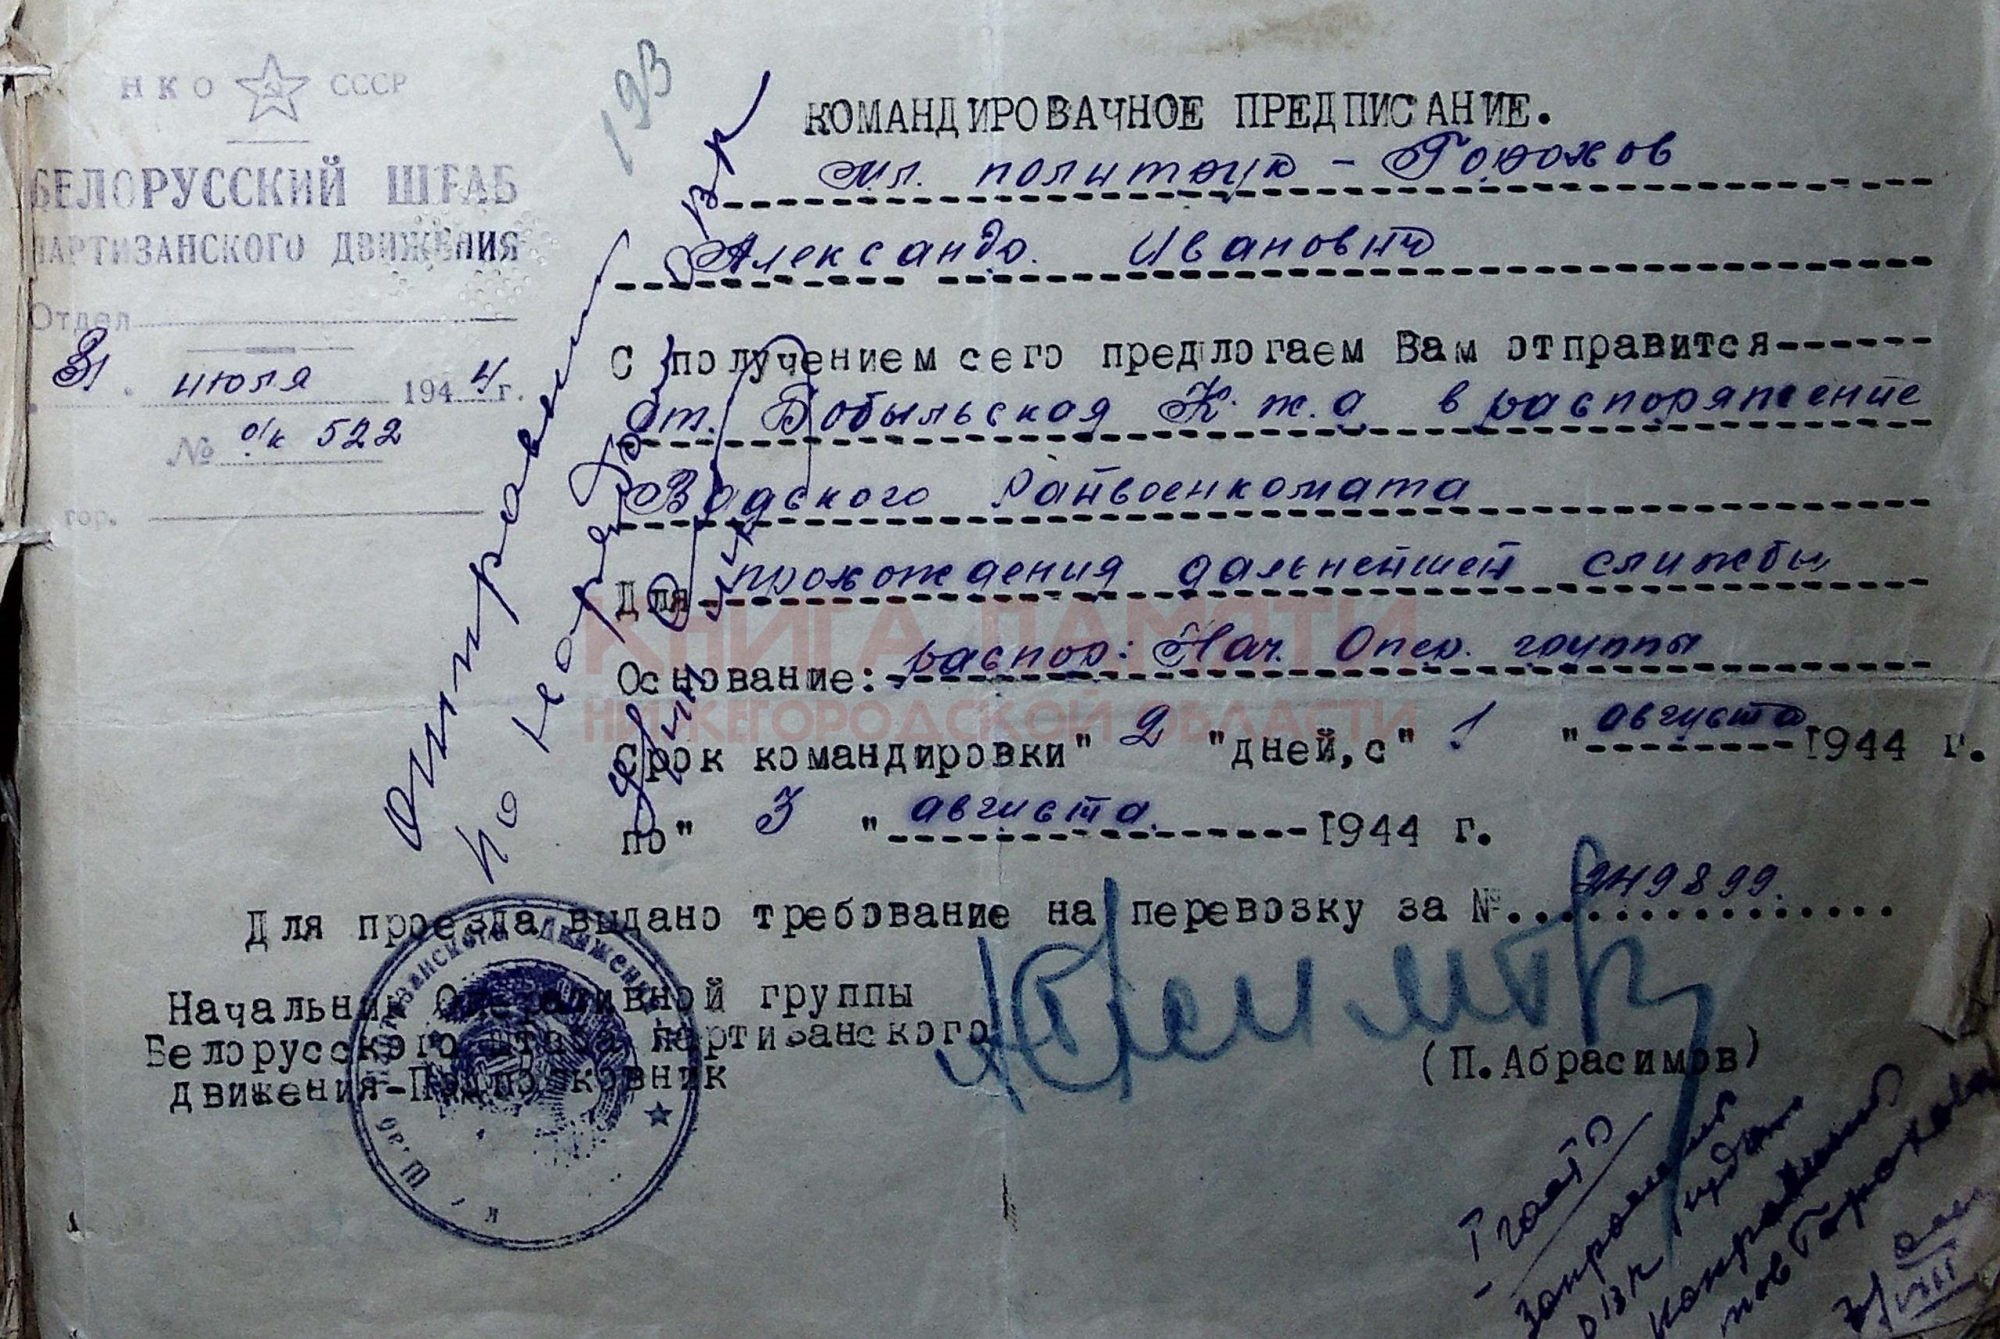 НКО СССР
БЕЛОРУССКИЙ ШТАБ
ПАРТИЗАНСКОГО ДВИЖЕНИЯ
Отдел
31 июля 1944 г.
№ о/к 522
гор.
193
КОМАНДИРОВАЧНОЕ ПРЕДПИСАНИЕ.
мл. политрук - Горохов
Александр. Иванович
С получением сего предлогаем Вам отправится
ст. Бобыльская К.ж.д в распоряжение
Вадского Райвоенкомата
Для прохождения дальнейшей службы
Основание: распор: Нач. Опер. группы
Срок командировки "2" дней, с "1" августа 1944 г.
по "3" августа 1944 г.
Для проезда выдано требование на перевозку за №. 249899.
Начальник Оперативной группы
Белорусского Штаба партизанского
движения-Подполковник
(П.Абрасимов)
отправлен
в ОВК
КНИГА ПАМЯТИ
НИЖЕГОРОДСКОЙ ОБЛАСТИ
Горохова